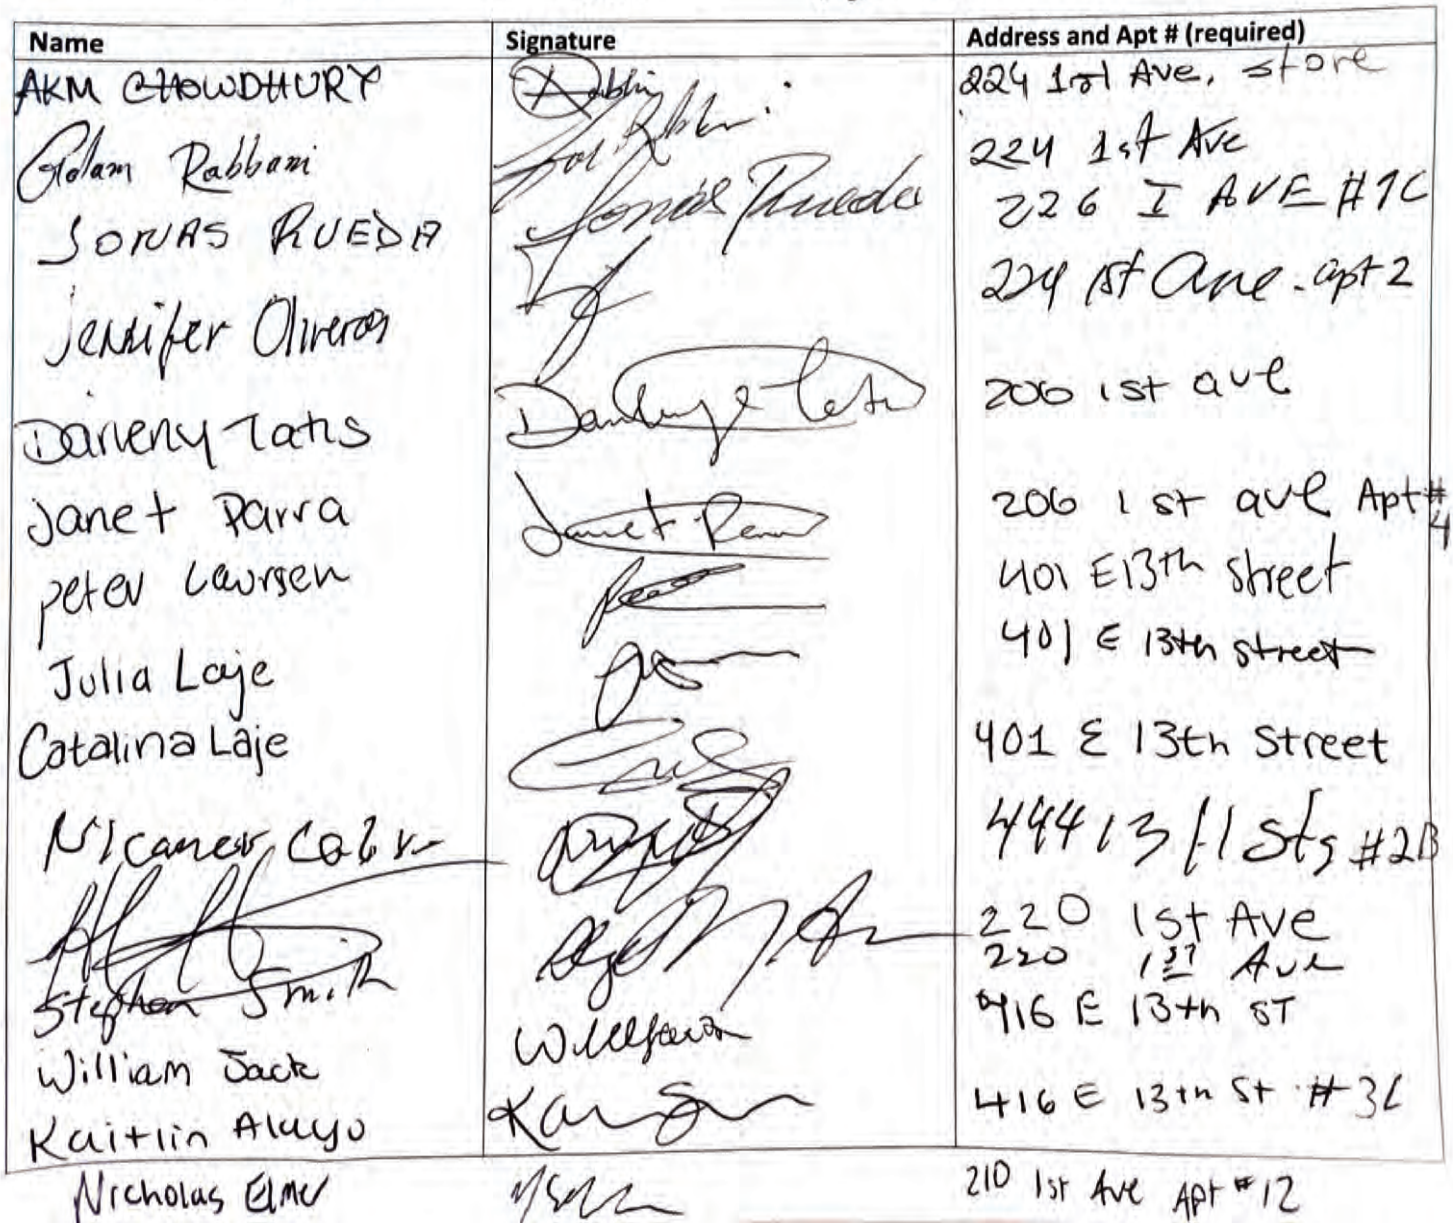 Name Signature Address and Apt # (required)
AKM CHOWDHURY 224 1st Ave. store
Golam Rabbani 224 1st Ave
JONAS RUEDA Jonas Rueda 226 I AVE #1C
Jennifer Oliveros 224 1st Ave. apt 2
Darleny Tatis 206 1st ave
Janet Parra Janet Parra 206 1st ave Apt # 4
peter Laursen 401 E 13th street
Julia Laje 401 E 13th street
Catalina Laje 401 E 13th Street
Nicanor 444 13 #2B
220 1st Ave
Stephen Smith 220 1st Ave
William Jack 416 E 13th ST
Kaitlin 416 E 13th St #3C
Nicholas Elmer 210 1st Ave Apt #12